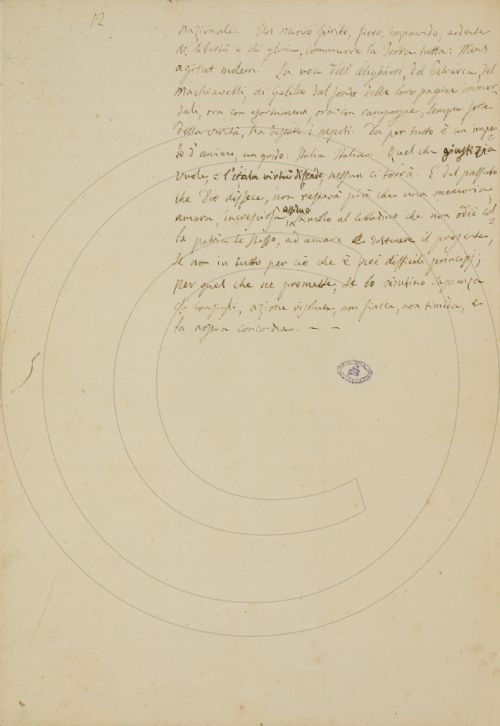 12
nazionale. Un nuovo spirito, fiero, impavido, ardente
di libertà e di gloria, commuove la terra tutta: Mens
agitat molem. La voce dell'Alighieri, del Petrarca, del
Machiavelli, di Galileo dal fondo delle loro pagine immor-
tali, ora con ora con sempre forte
della verità, ha i nepoti. Da per tutto è un impe-
to d'animi, un grido: Italia Italia. Quel che giustizia
vuole, e l'itala virtù difende, nessun ci torrà. E del passato
che Dio disfece, non resterà più che una memoria
amara, increspiosa, assiduo al cittadino che non odii col-
la patria se stesso, ad amare e sostenere il presente,
se non in tutto per ciò che è dei difficili principj,
per quel che ne promette, se lo aiutino sapienza
di consigli, azione risoluta, non fiacca, non timida, e
la nostra concordia. — —